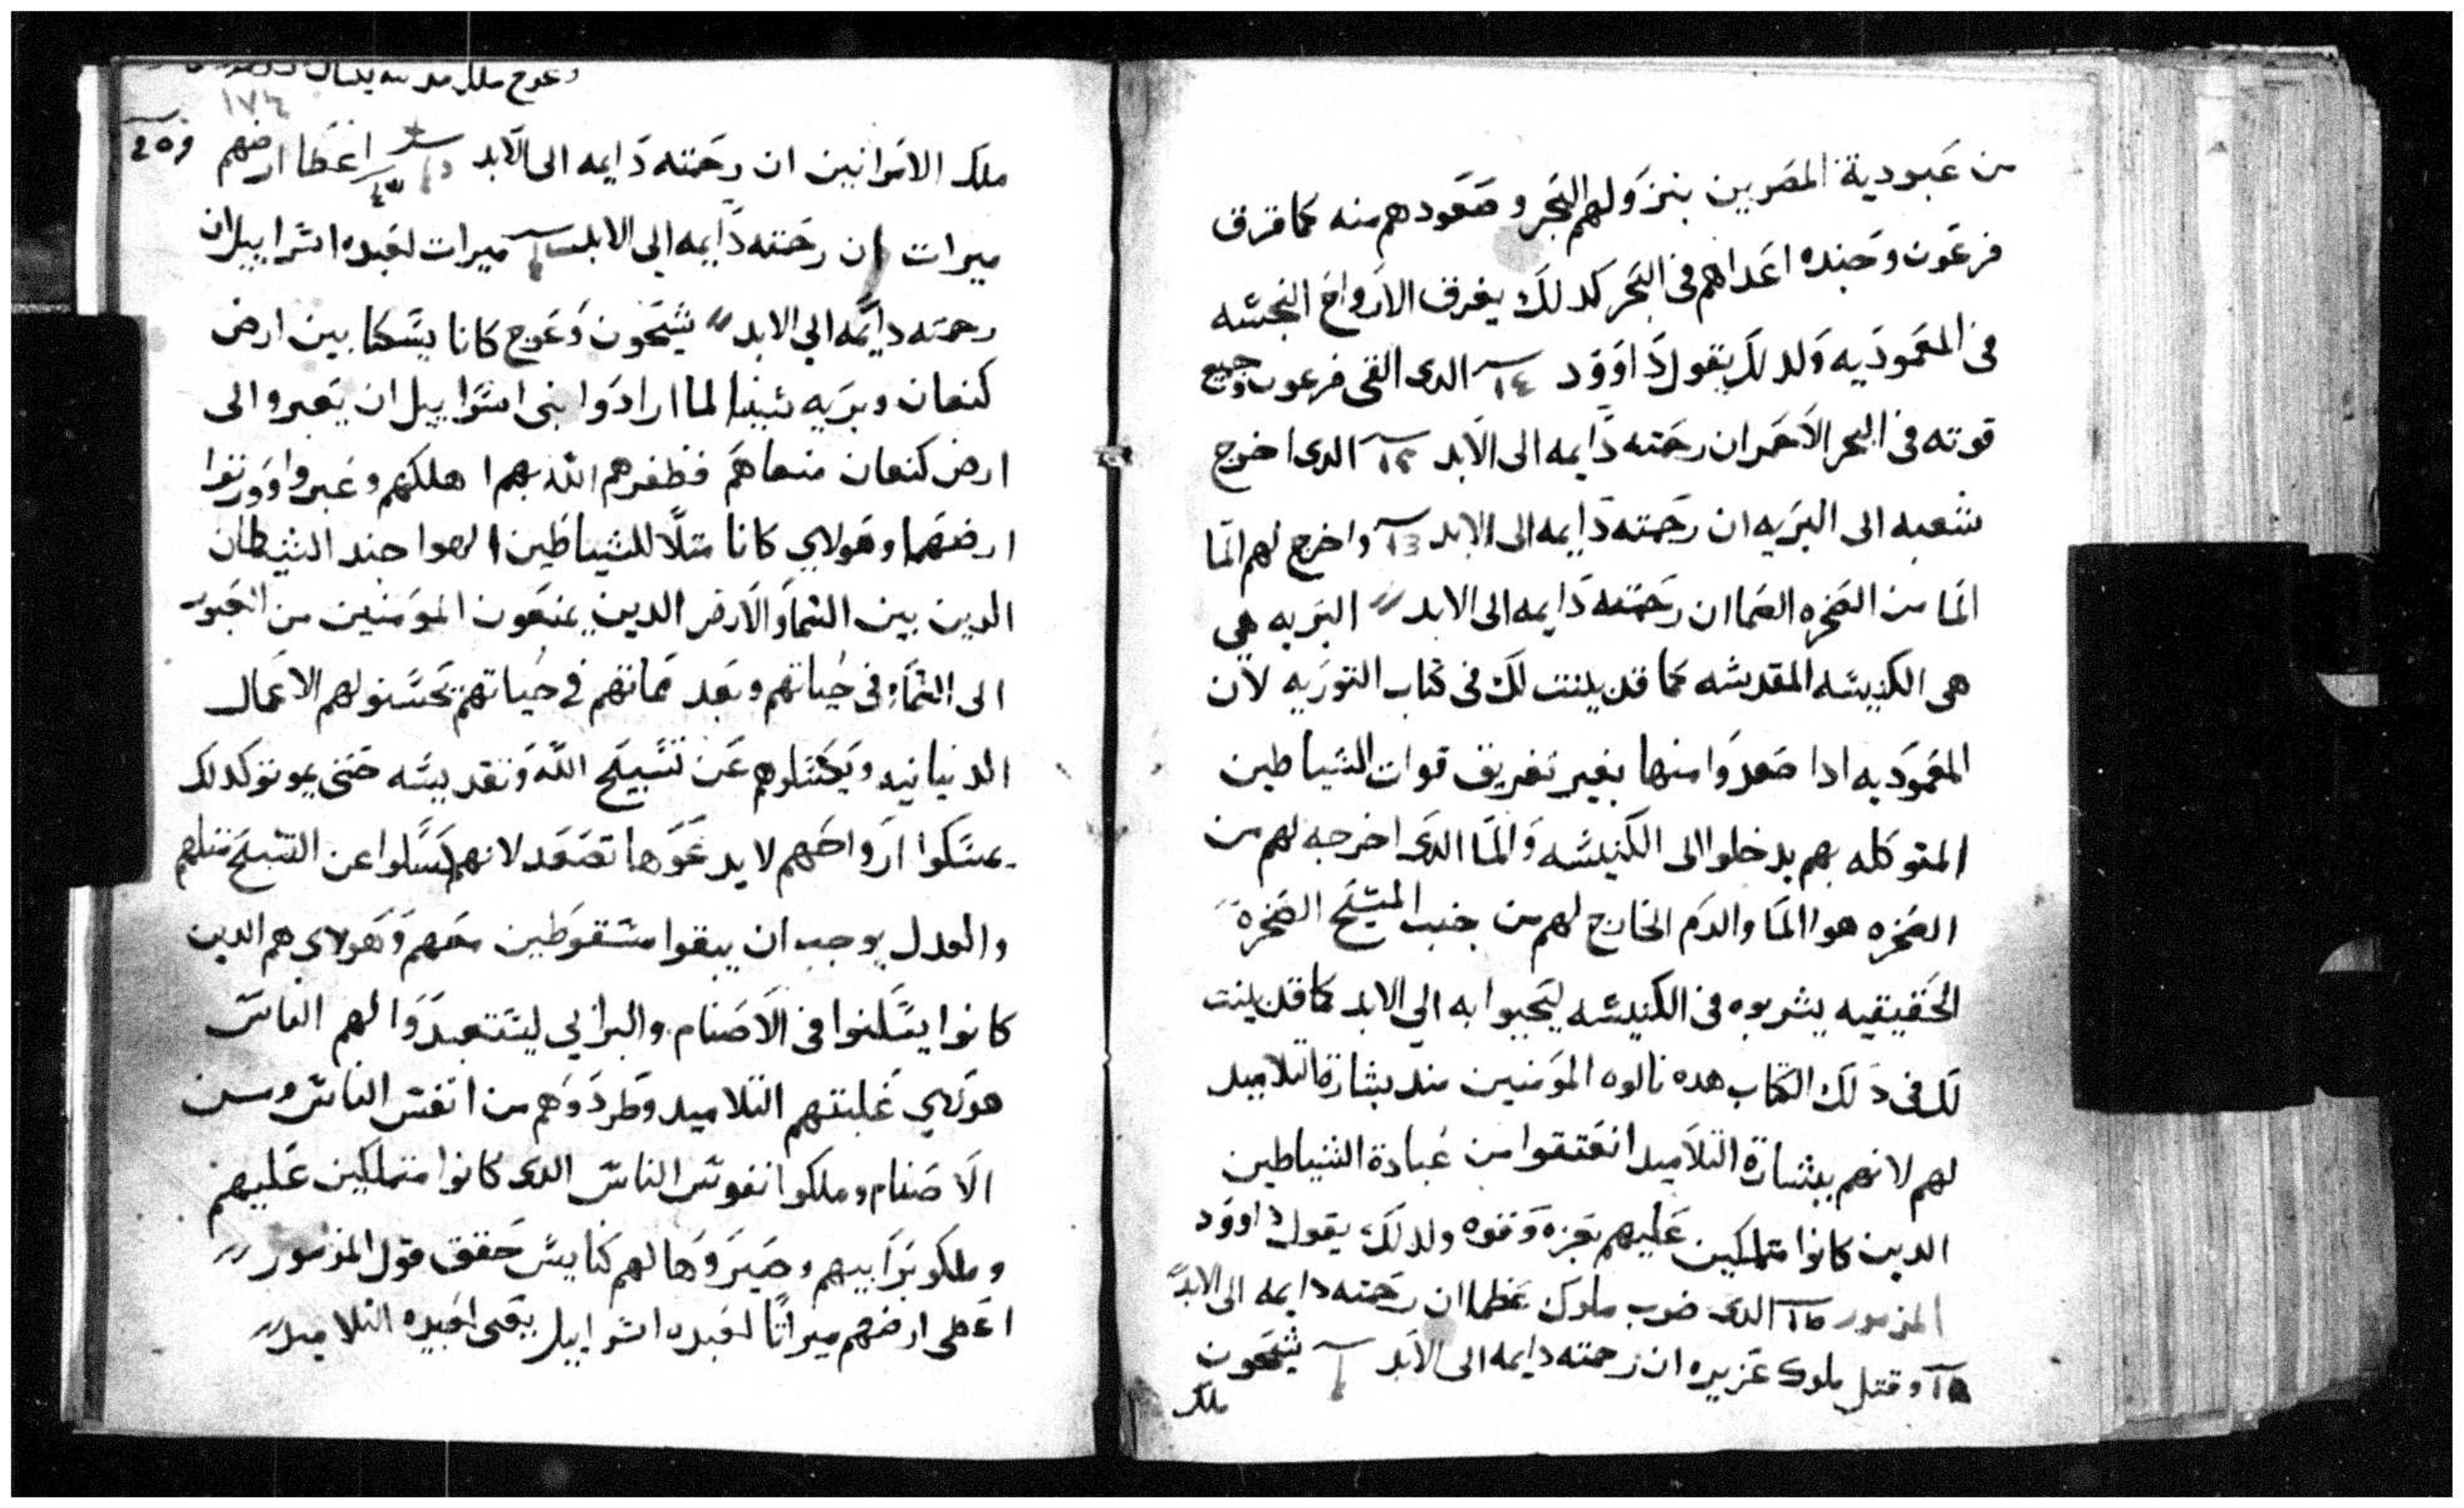 من عبودية المصريين بنزولهم البحر وصعودهم منه كما غرق
فرعون وجنده اعداهم فى البحر كدلك يغرق الارواح النجسه
فى المعموديه ولدلك يقول داوود ١٤ الدى القى فرعون وجميع
قوته فى البحر الاحمر ان رحمته دايمه الى الابد الدى اخرج
شعبه الى البريه ان رحمته دايمه الى الابد واخرج لهم الما
الما من الصخره الصما ان رحمته دايمه الى الابد البريه هي
هى الكنيسه المقدسه كما قد بينت لك فى كتاب التوريه لان
المعموديه ادا صعدوا منها بغير تغريق قوات الشياطين
المتوكله بهم يدخلوا الى الكنيسه والما الدى اخرجه لهم من
الصخره هو الما والدم الخارج لهم من جنب المسيح الصخرة
الحقيقيه يشربوه فى الكنيسه ليحيوا به الي الابد كما قد بينت
لك فى دلك الكتاب هده نالوه المومنين مند بشارة التلاميد
لهم لانهم ببشارة التلاميد انعتقوا من عبادة الشياطين
الدين كانوا متملكين عليهم بعزه وقوه ولدلك يقول داوود
المزمور الدى ضرب ملوك عظما ان رحمته دايمه الى الابد
وقتل ملوك عزيزه ان رحمته دايمه الى الابد شيحون
ملك
وعوج ملك
١٧٤
ملك الامرانيين ان رحمته دايمه الى الابد اعطا ارضهم
ميرات ان رحمته دايمه الي الابد ميرات لعبده اسراييل ان
رحمته دايمه الي الابد شيحون وعوج كانا يسكنا بين ارض
كنعان وبريه سينا لما ارادوا بنى اسراييل ان يعبروا الى
ارض كنعان منعاهم فظفرهم الله بهم اهلكهم وعبروا وورتوا
ارضهما وهولاي كانا متلا للشياطين الهوا جند الشيطان
الدين بين السما والارض الدين يمنعون المومنين من العبور
الى السما فى حياتهم وبعد مماتهم في حياتهم يحسنو لهم الاعمال
الدنيانيه ويكسلوهم عن تسبيح الله وتقديسه حتى يموتو كدلك
يمسكوا ارواحهم لا يدعوها تصعد لانهم كسلوا عن التسبيح متلهم
والعدل يوجب ان يبقوا مسقوطين معهم وهولاى هم الدين
كانوا يسكنوا فى الاصنام والبرابي ليستعبدوا لهم الناس
هولاي غلبتهم التلاميد وطردوهم من انفس الناس ومن
الاصنام وملكوا نفوس الناس الدى كانوا متملكين عليهم
وملكو برابيهم وصيروها لهم كنايس حقق قول المزمور
اعطى ارضهم ميراتا لعبده اسراييل يعنى لعبيده التلاميد